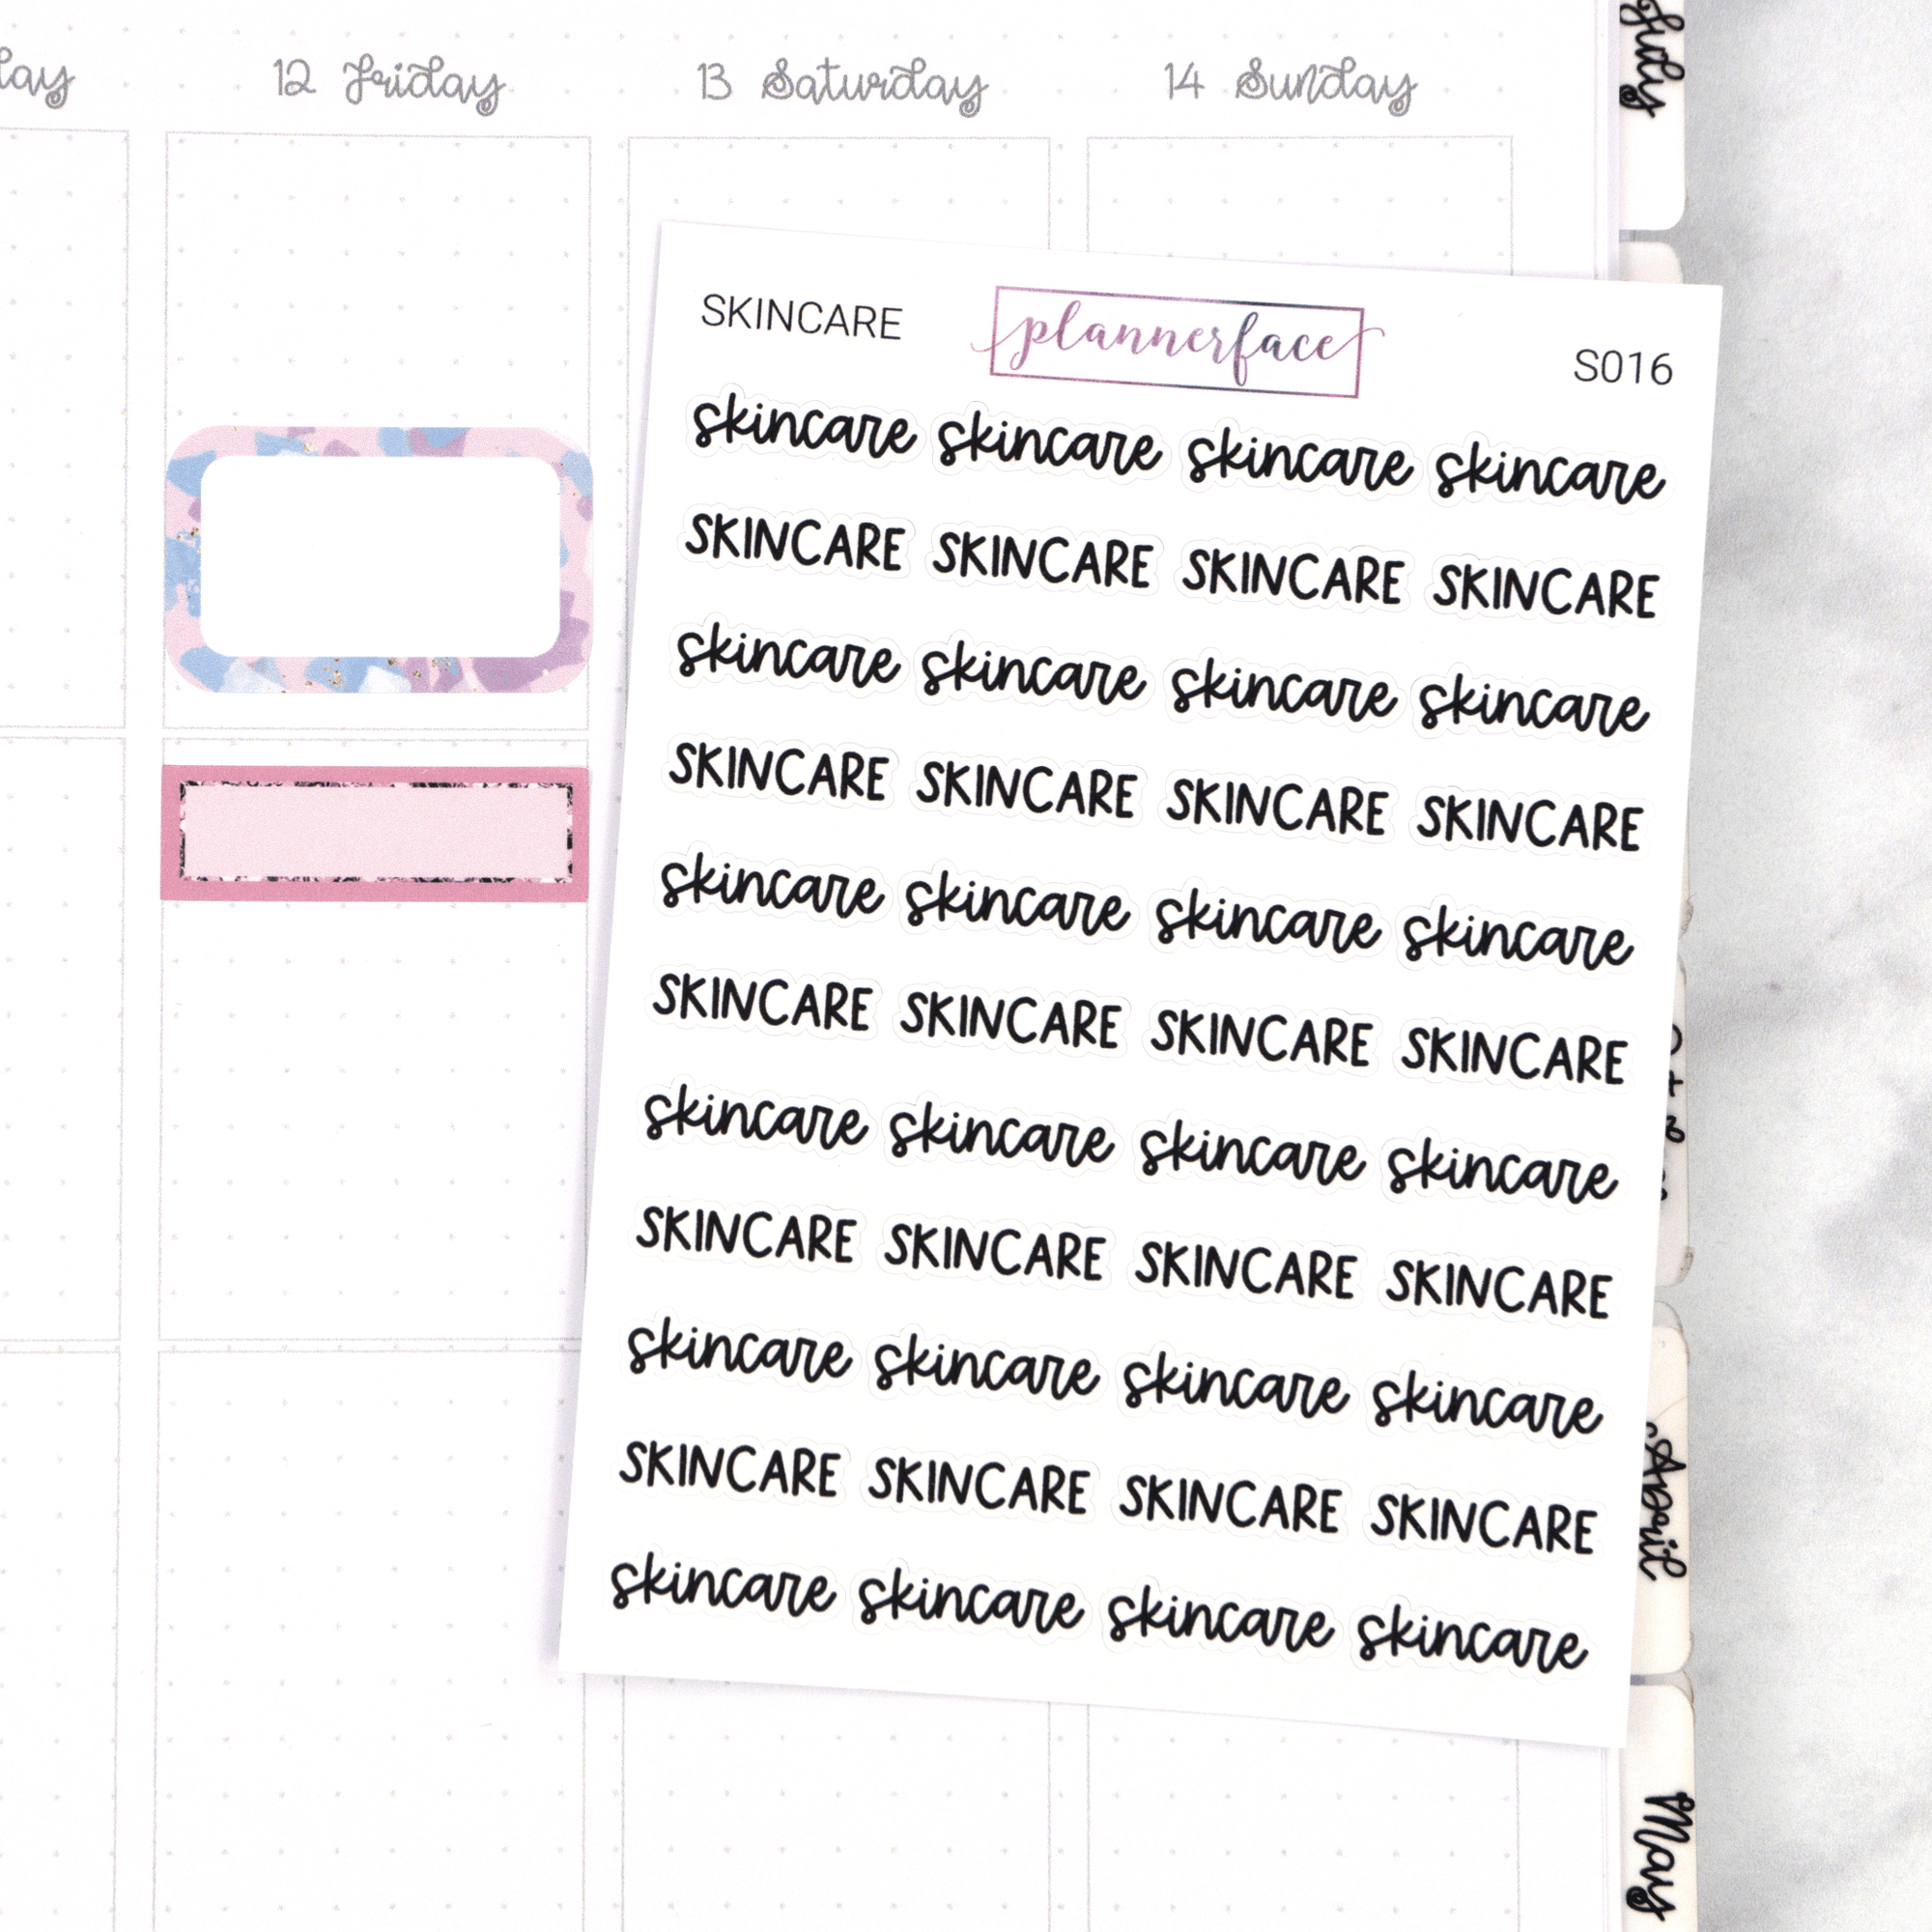 12 Friday
13 Saturday
14 Sunday
July
SKINCARE
plannerface
S016
skincare skincare skincare skincare
SKINCARE SKINCARE SKINCARE SKINCARE
skincare skincare skincare skincare
SKINCARE SKINCARE SKINCARE SKINCARE
skincare skincare skincare skincare
SKINCARE SKINCARE SKINCARE SKINCARE
skincare skincare skincare skincare
SKINCARE SKINCARE SKINCARE SKINCARE
skincare skincare skincare skincare
SKINCARE SKINCARE SKINCARE SKINCARE
skincare skincare skincare skincare
April
May